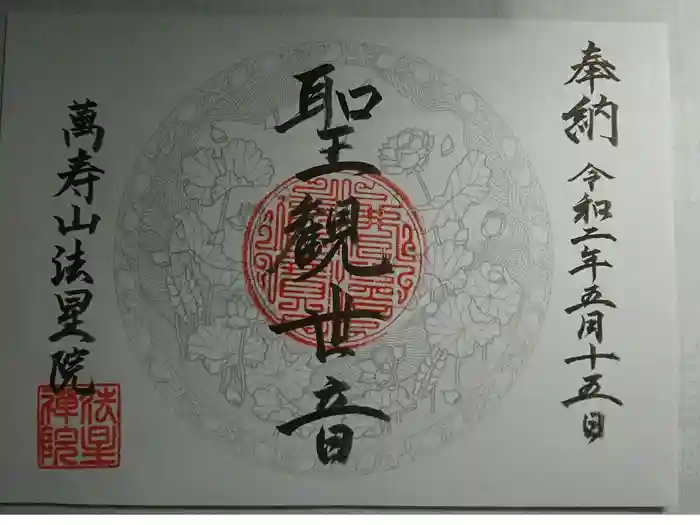 奉納 令和二年五月十五日
聖観世音
萬寿山法星院
法星禅院